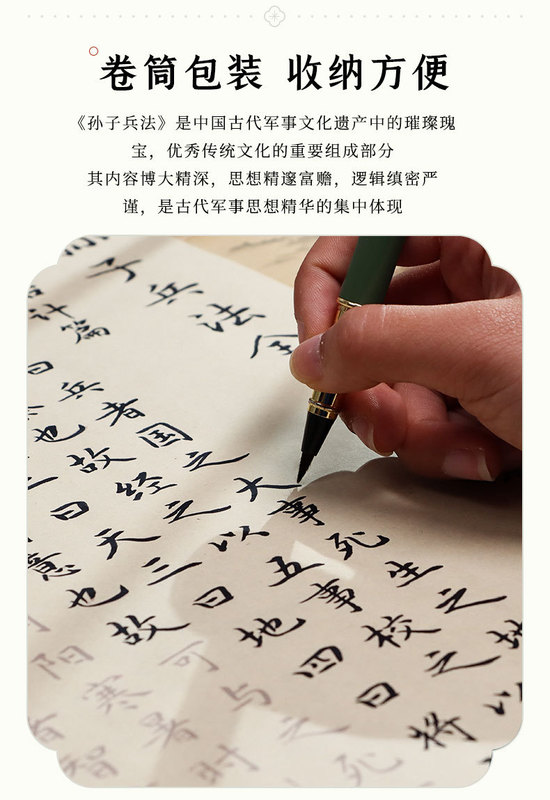 卷筒包装 收纳方便
《孙子兵法》是中国古代军事文化遗产中的璀璨瑰
宝，优秀传统文化的重要组成部分
其内容博大精深，思想精邃富赡，逻辑缜密严
谨，是古代军事思想精华的集中体现
孙子兵法全
计篇
曰兵者国之大事死生之地
也故经之以五事校之以
曰天三曰地四曰将
意也故可与之死
阳寒暑时
者智